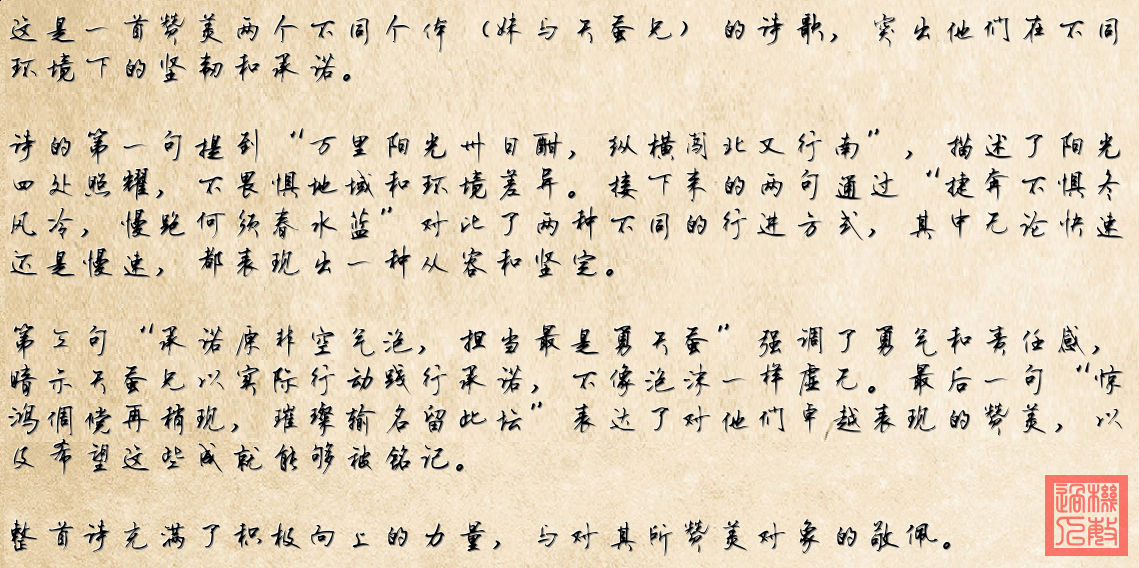 这是一首赞美两个不同个体（妹与天蚕兄）的诗歌，突出他们在不同
环境下的坚韧和承诺。
诗的第一句提到“万里阳光卅日酣，纵横闯北又行南”，描述了阳光
四处照耀，不畏惧地域和环境差异。接下来的两句通过“捷奔不惧冬
风冷，慢跑何须春水蓝”对比了两种不同的行进方式，其中无论快速
还是慢速，都表现出一种从容和坚定。
第三句“承诺原非空气泡，担当最是勇天蚕”强调了勇气和责任感，
暗示天蚕兄以实际行动践行承诺，不像泡沫一样虚无。最后一句“惊
鸿倜傥再稍现，璀璨输名留此坛”表达了对他们卓越表现的赞美，以
及希望这些成就能够被铭记。
整首诗充满了积极向上的力量，与对其所赞美对象的敬佩。